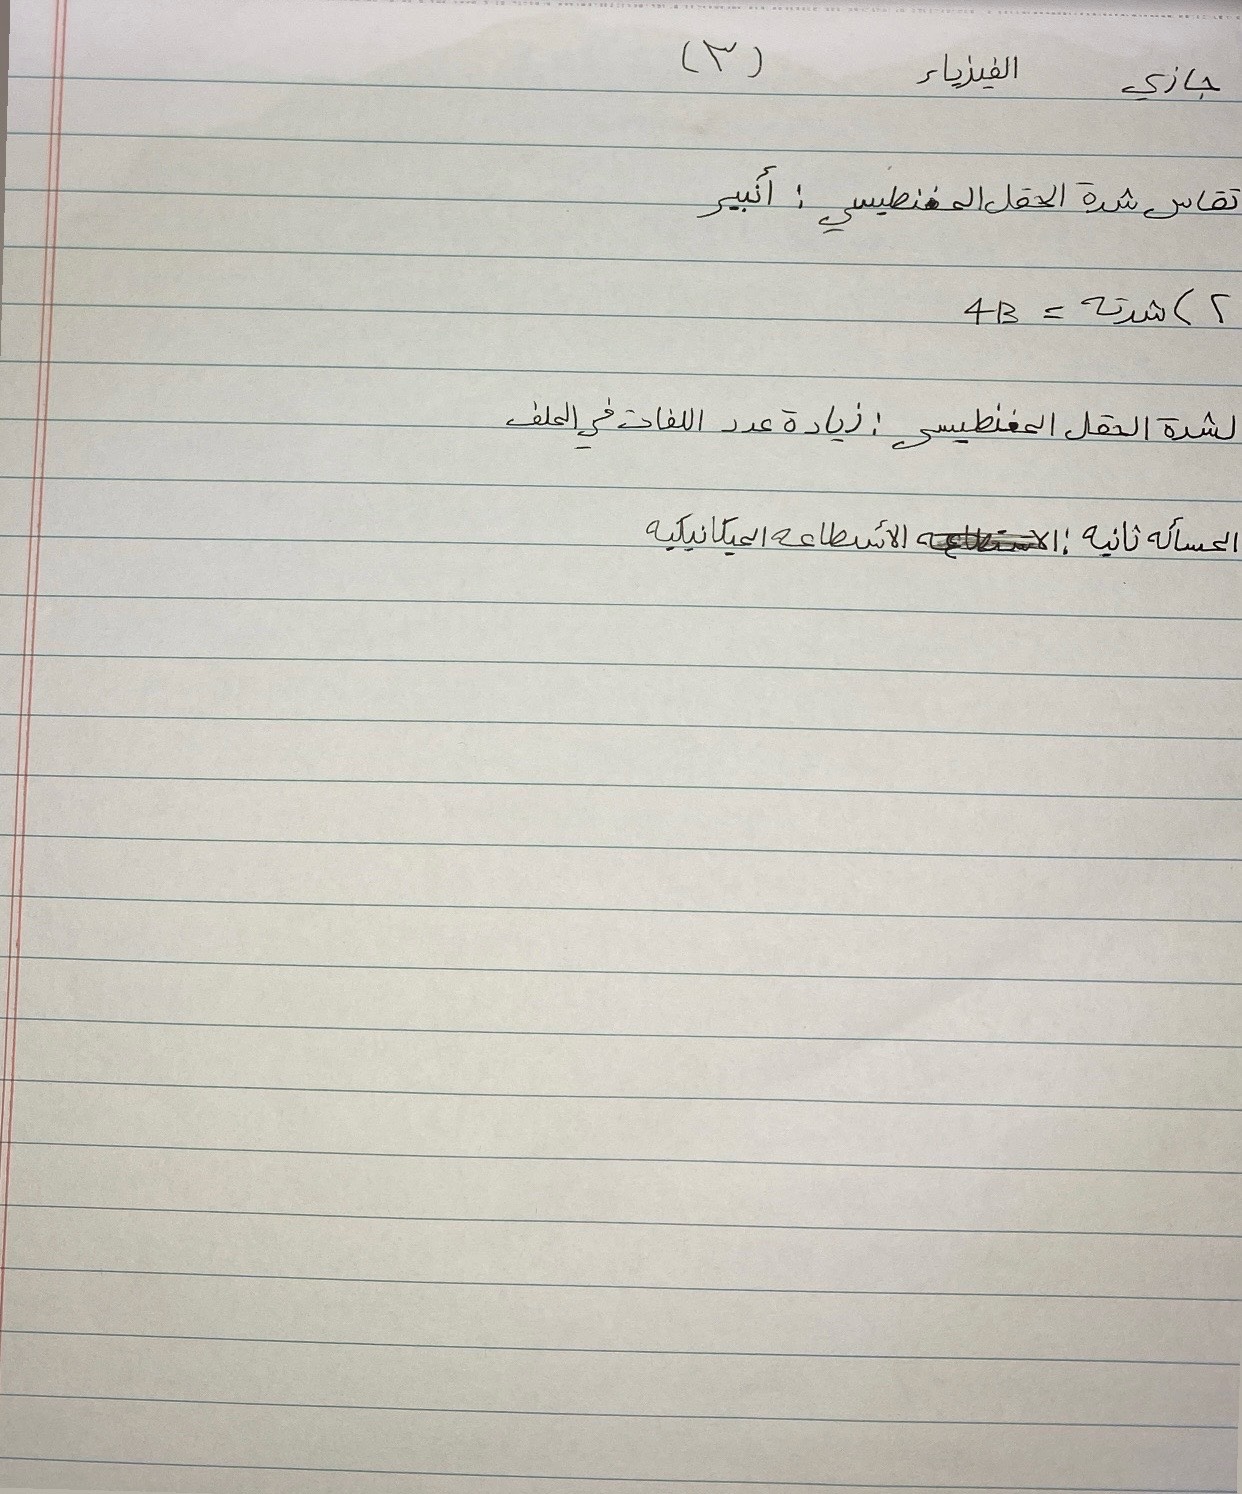 جازي الفيزياء (٣)
تقاس شدة الحقل المغنطيسي : أنبير
٢) شدته = 4B
لشدة الحقل المغنطيسي : زيادة عدد اللفات في الملف
المسألة ثانية : الأسطاعة الميكانيكية